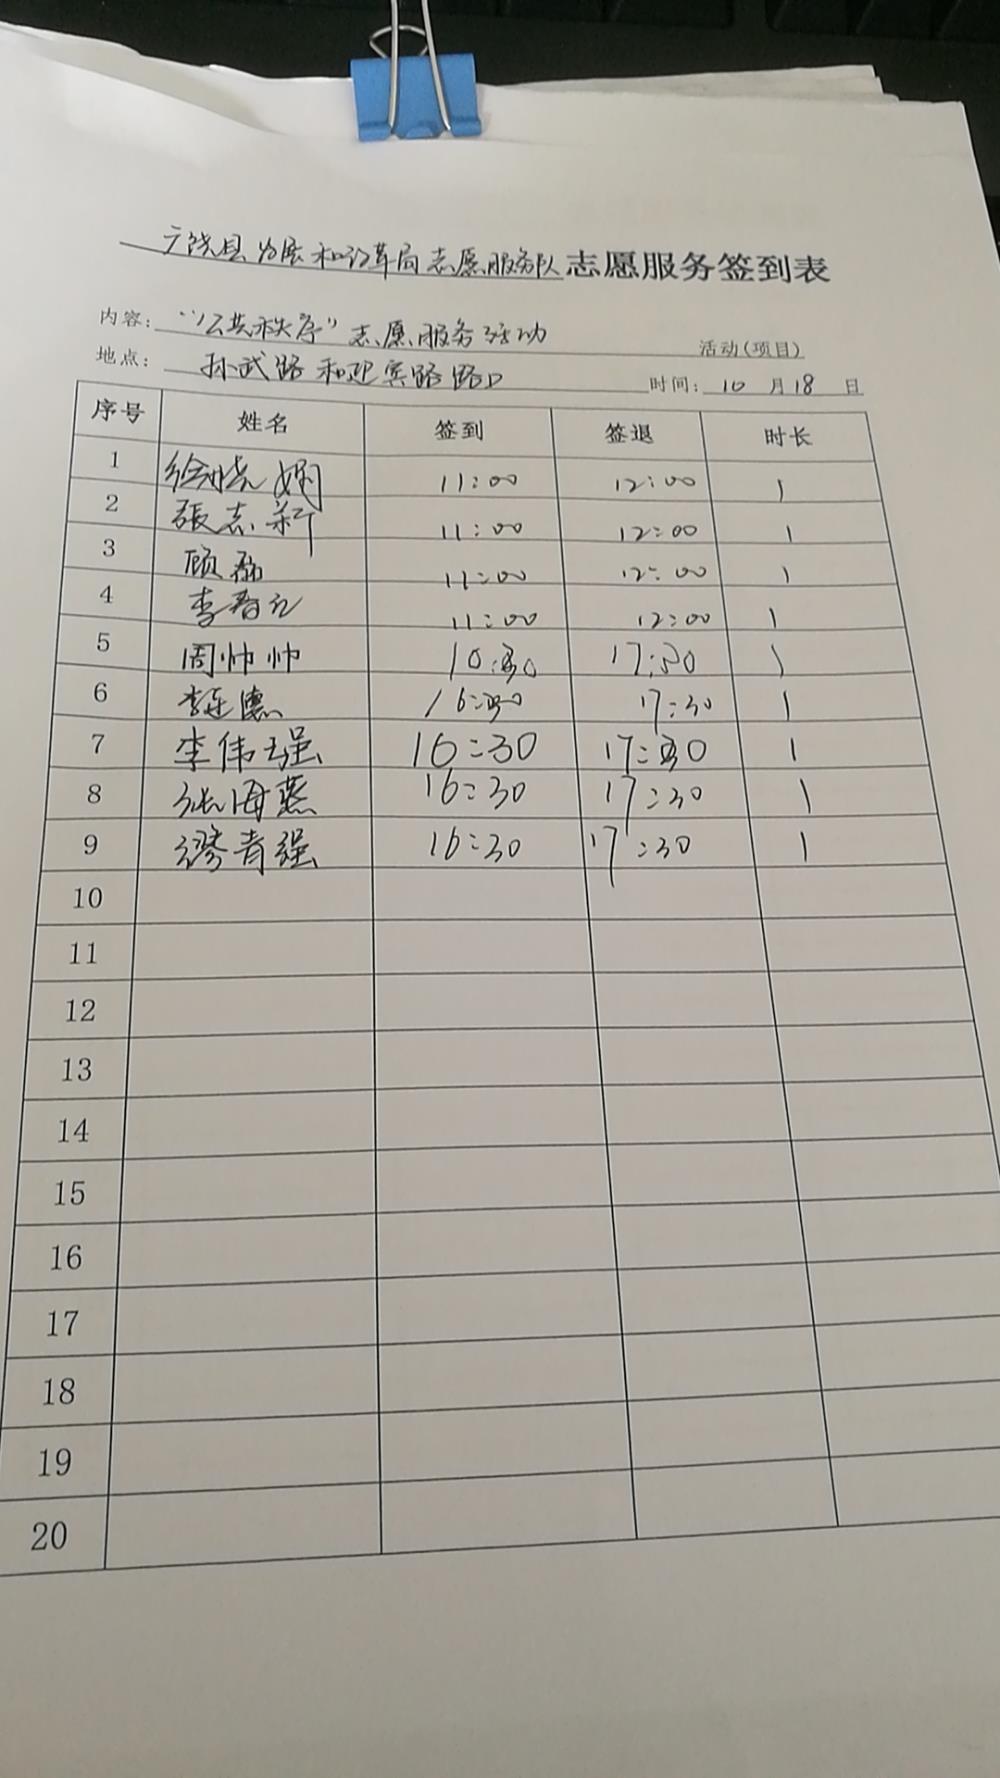 广饶县发展和改革局志愿服务队志愿服务签到表
内容: “公共秩序”志愿服务活动 活动(项目)
地点: 孙武路和迎宾路路口 时间: 10 月 18 日
序号 姓名 签到 签退 时长
1 徐晓娴 11:00 12:00 1
2 張志新 11:00 12:00 1
3 顾磊 11:00 12:00 1
4 李 11:00 12:00 1
5 周帅帅 16:30 17:30 1
6 李连德 16:30 17:30 1
7 李伟强 16:30 17:30 1
8 张海燕 16:30 17:30 1
9 缪青强 16:30 17:30 1
10
11
12
13
14
15
16
17
18
19
20